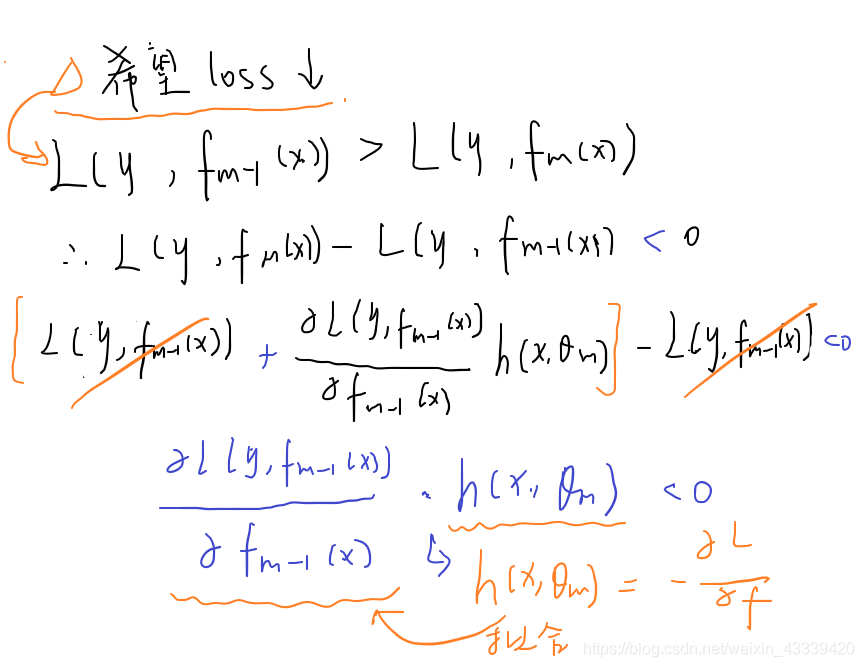 希望 loss ↓
L(y, f_{m-1}(x)) > L(y, f_m(x))
∴ L(y, f_m(x)) - L(y, f_{m-1}(x)) < 0
[L(y, f_{m-1}(x)) + ∂L(y, f_{m-1}(x)) / ∂f_{m-1}(x) h(x, θ_m)] - L(y, f_{m-1}(x)) < 0
∂L(y, f_{m-1}(x)) / ∂f_{m-1}(x) · h(x, θ_m) < 0
↳ h(x, θ_m) = - ∂L / ∂f
拟合
https://blog.csdn.net/weixin_43339420